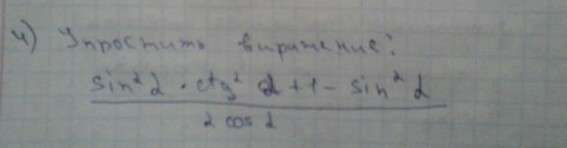 4) Упростить выражение:
sin² α · ctg² α + 1 - sin² α
2 cos α